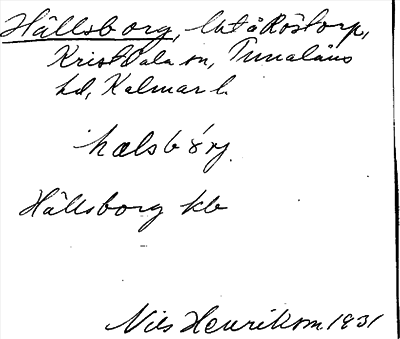 Hällsborg, lht å Röstorp,
Kristvala sn, Tunaläns
hd, Kalmar l.
hælsbórj
Hällsborg kb
Nils Henrikson 1931